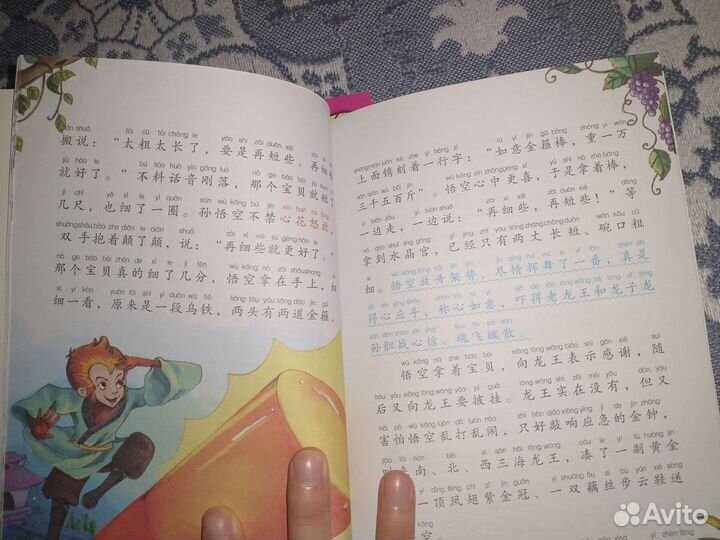 shuō tài cū tài cháng le yào shi zài duǎn xiē
搬说：“太粗太长了，要是再短些、再细
jiù hǎo le bú liào huà yīn gāng luò nà ge bǎo bèi jiù
就好了。”不料话音刚落，那个宝贝就短
jǐ chǐ yě xì le yì quān sūn wù kōng bù jīn xīn huā nù fàng
几尺，也细了一圈。孙悟空不禁心花怒放，
shuāng shǒu bào zhe diān le diān shuō zài xì xiē jiù gèng hǎo le
双手抱着颠了颠，说：“再细些就更好了。”
nà ge bǎo bèi zhēn de xì le jǐ fēn wù kōng ná zài shǒu shang
那个宝贝真的细了几分，悟空拿在手上，细
xì yí kàn yuán lái shì yí duàn wū tiě liǎng tóu yǒu liǎng dào jīn gū
细一看，原来是一段乌铁，两头有两道金箍，
shàng miàn juān kè zhe yì háng zì rú yì jīn gū bàng zhòng yí wàn
上面镌刻着一行字：“如意金箍棒，重一万
sān qiān wǔ bǎi jīn wù kōng xīn zhōng gèng xǐ yú shì ná zhe bàng
三千五百斤”。悟空心中更喜，于是拿着棒，
yì biān zǒu yì biān shuō zài xì xiē zài duǎn xiē děng
一边走，一边说：“再细些，再短些！”等
ná dào shuǐ jīng gōng yǐ jīng zhǐ yǒu liǎng zhàng cháng duǎn wǎn kǒu cū
拿到水晶宫，已经只有两丈长短、碗口粗
xì wù kōng fàng kāi jià shi jìn qíng huī wǔ le yì fān zhēn shì
细。悟空放开架势，尽情挥舞了一番，真是
dé xīn yìng shǒu chèn xīn rú yì xià de lǎo lóng wáng hé lóng zǐ lóng
得心应手，称心如意，吓得老龙王和龙子龙
sūn dǎn zhàn xīn jīng hún fēi pò sàn
孙胆战心惊、魂飞魄散。
wù kōng ná zhe bǎo bèi xiàng lóng wáng biǎo shì gǎn xiè suí
悟空拿着宝贝，向龙王表示感谢，随
hòu yòu xiàng lóng wáng yào pī guà lóng wáng shí zài méi yǒu dàn yòu
后又向龙王要披挂。龙王实在没有，但又
hài pà wù kōng luàn dǎ luàn nào zhǐ hǎo qiāo xiǎng yìng jí de jīn zhōng
害怕悟空乱打乱闹，只好敲响应急的金钟，
nán běi xī sān hǎi lóng wáng còu le yí fù huáng jīn
来南、北、西三海龙王，凑了一副黄金
yì dǐng fèng chì zǐ jīn guān yì shuāng ǒu sī bù yún xié sòng
一顶凤翅紫金冠、一双藕丝步云鞋送
Avito